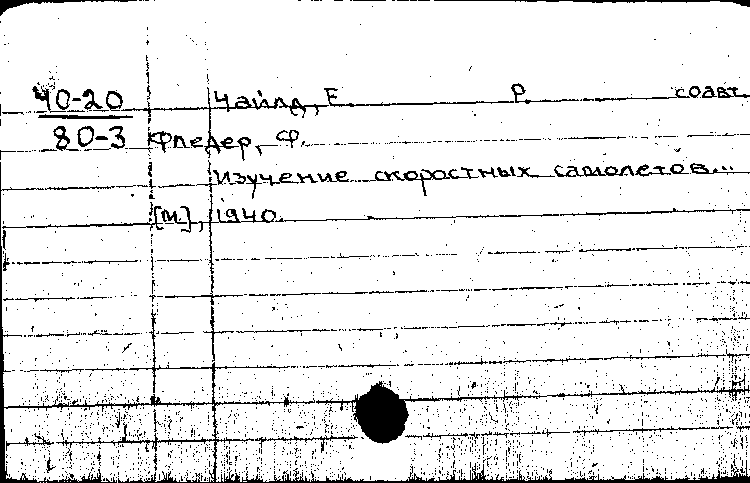 40-20 Чайлд, Е. Р. соавт.
80-3 Фледер, Ф.
Изучение скоростных самолетов...
[М.], 1940.